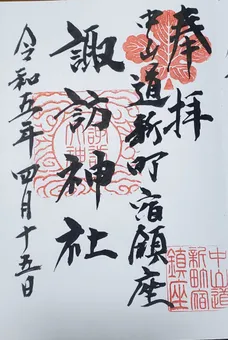 奉拝
中山道新町宿鎮座
諏訪神社
令和五年四月十五日
中山道
新町宿
鎮座